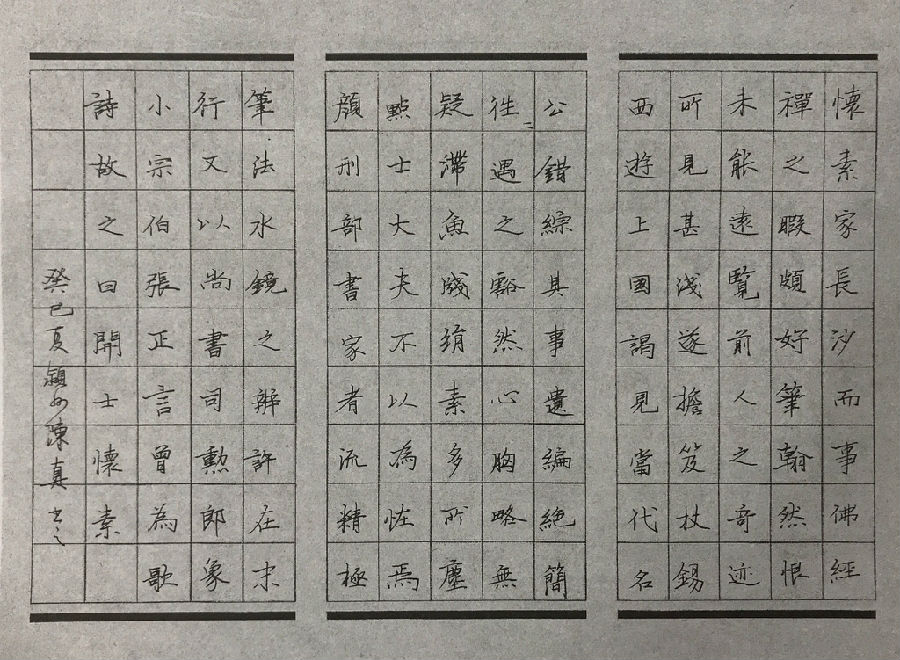 懷素家長沙而事佛經
禪之暇頗好筆翰然恨
未能遠覽前人之奇迹
所見甚淺遂擔笈杖錫
西遊上國謁見當代名
公錯綜其事遺編絕簡
往〻遇之豁然心胸略無
疑滯魚牋絹素多所塵
點士大夫不以為怪焉
顏刑部書家者流精極
筆法水鏡之辨許在末
行又以尚書司勳郎象
小宗伯張正言曾為歌
詩故之曰開士懷素
癸巳夏潁州陳真书之